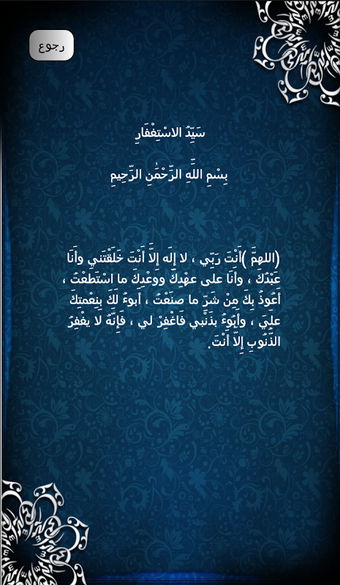 رجوع
سَيِّدُ الاسْتِغْفَارِ
بِسْمِ اللَّهِ الرَّحْمَٰنِ الرَّحِيمِ
(اللهمَّ )أَنْتَ رَبِّي ، لا إلَه إِلاَّ أَنْتَ خَلَقْتَني وأَنَا
عَبْدُكَ ، وأَنَا على عهْدِكَ ووعْدِكَ ما اسْتَطَعْتَ ،
أَعُوذُ بِكَ مِنْ شَرِّ ما صنَعْتَ ، أَبوءُ لَكَ بِنِعْمتِكَ
علَيَ ، وأَبُوءُ بذَنْبي فَاغْفِرْ لي ، فَإِنَّهُ لا يغْفِرُ
الذُّنُوبِ إِلاَّ أَنْتَ.